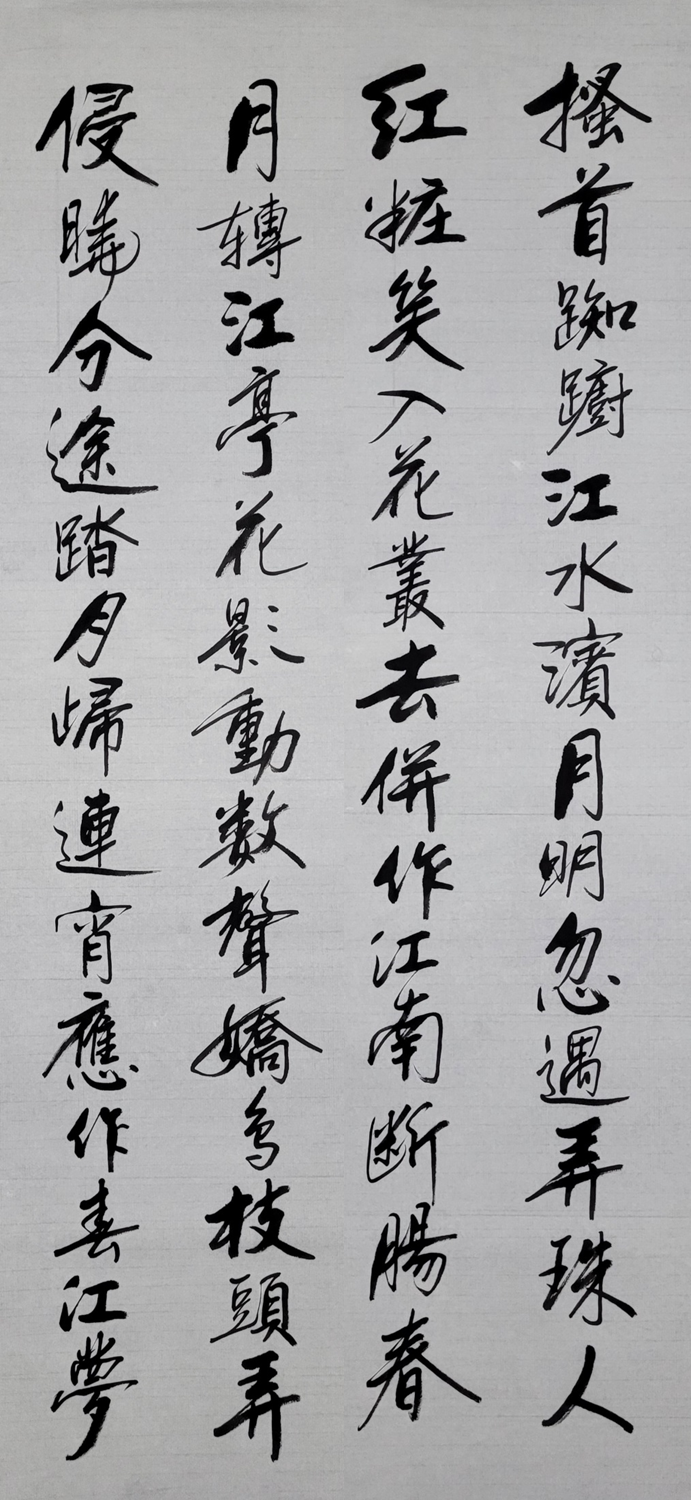 搔首踟躕江水濱月明忽遇弄珠人
紅粧笑入花叢去併作江南斷腸春
月轉江亭花影動數聲嬌鳥枝頭弄
侵曉分途踏月歸連宵應作春江夢